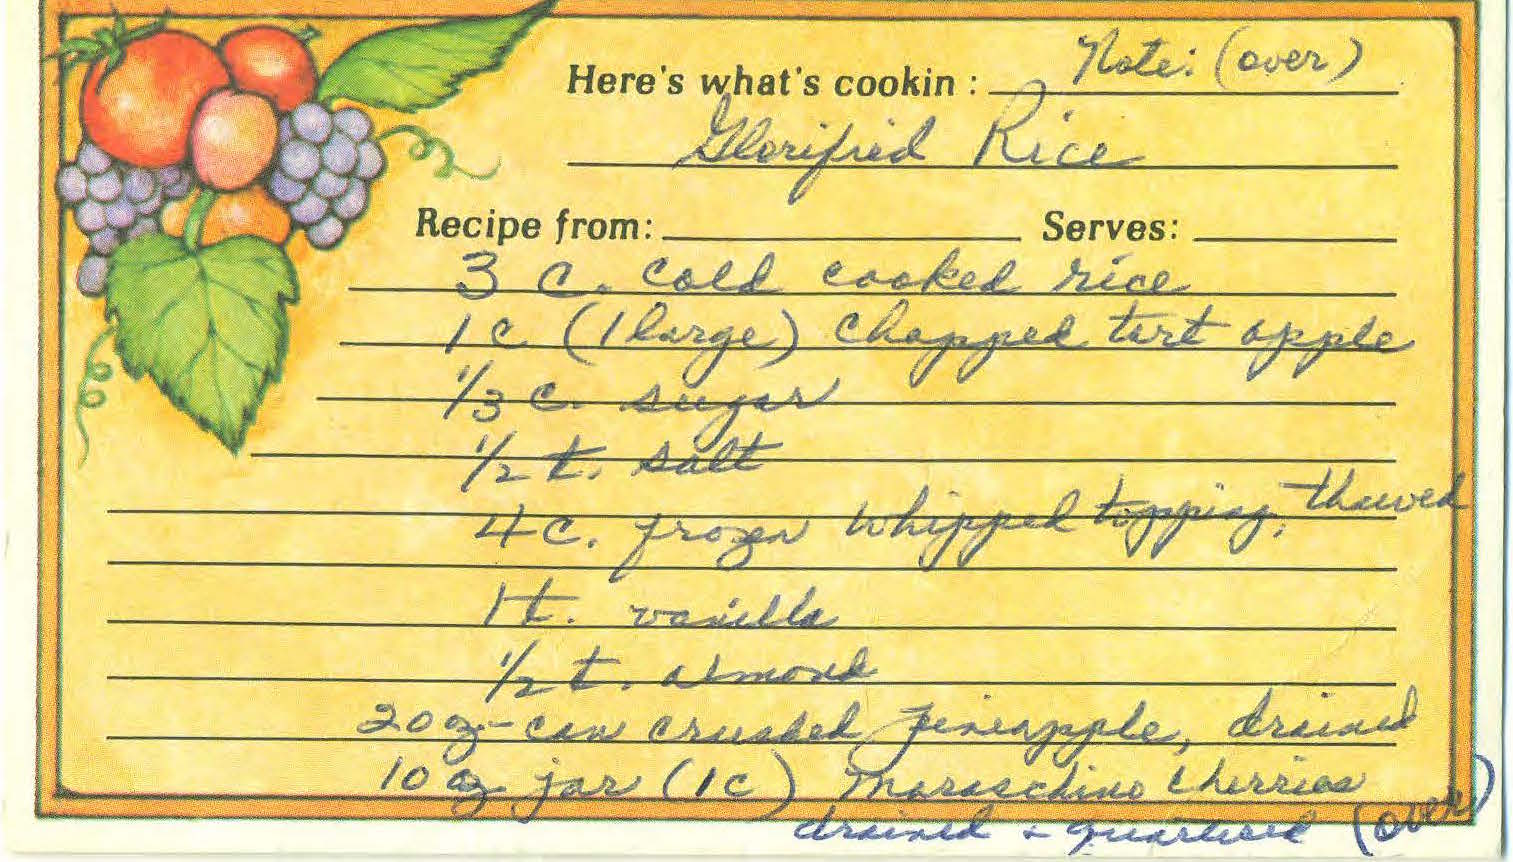 Here's what's cookin : Note: (over)
Glorified Rice
Recipe from: Serves:
3 c. cold cooked rice
1 c (1 large) chopped tart apple
1/3 c. sugar
1/2 t. salt
4 c. frozen whipped topping, thawed
1 t. vanilla
1/2 t. almond
20 oz-can crushed pineapple, drained
10 oz jar (1c) Maraschino cherries
drained + quartered (over)